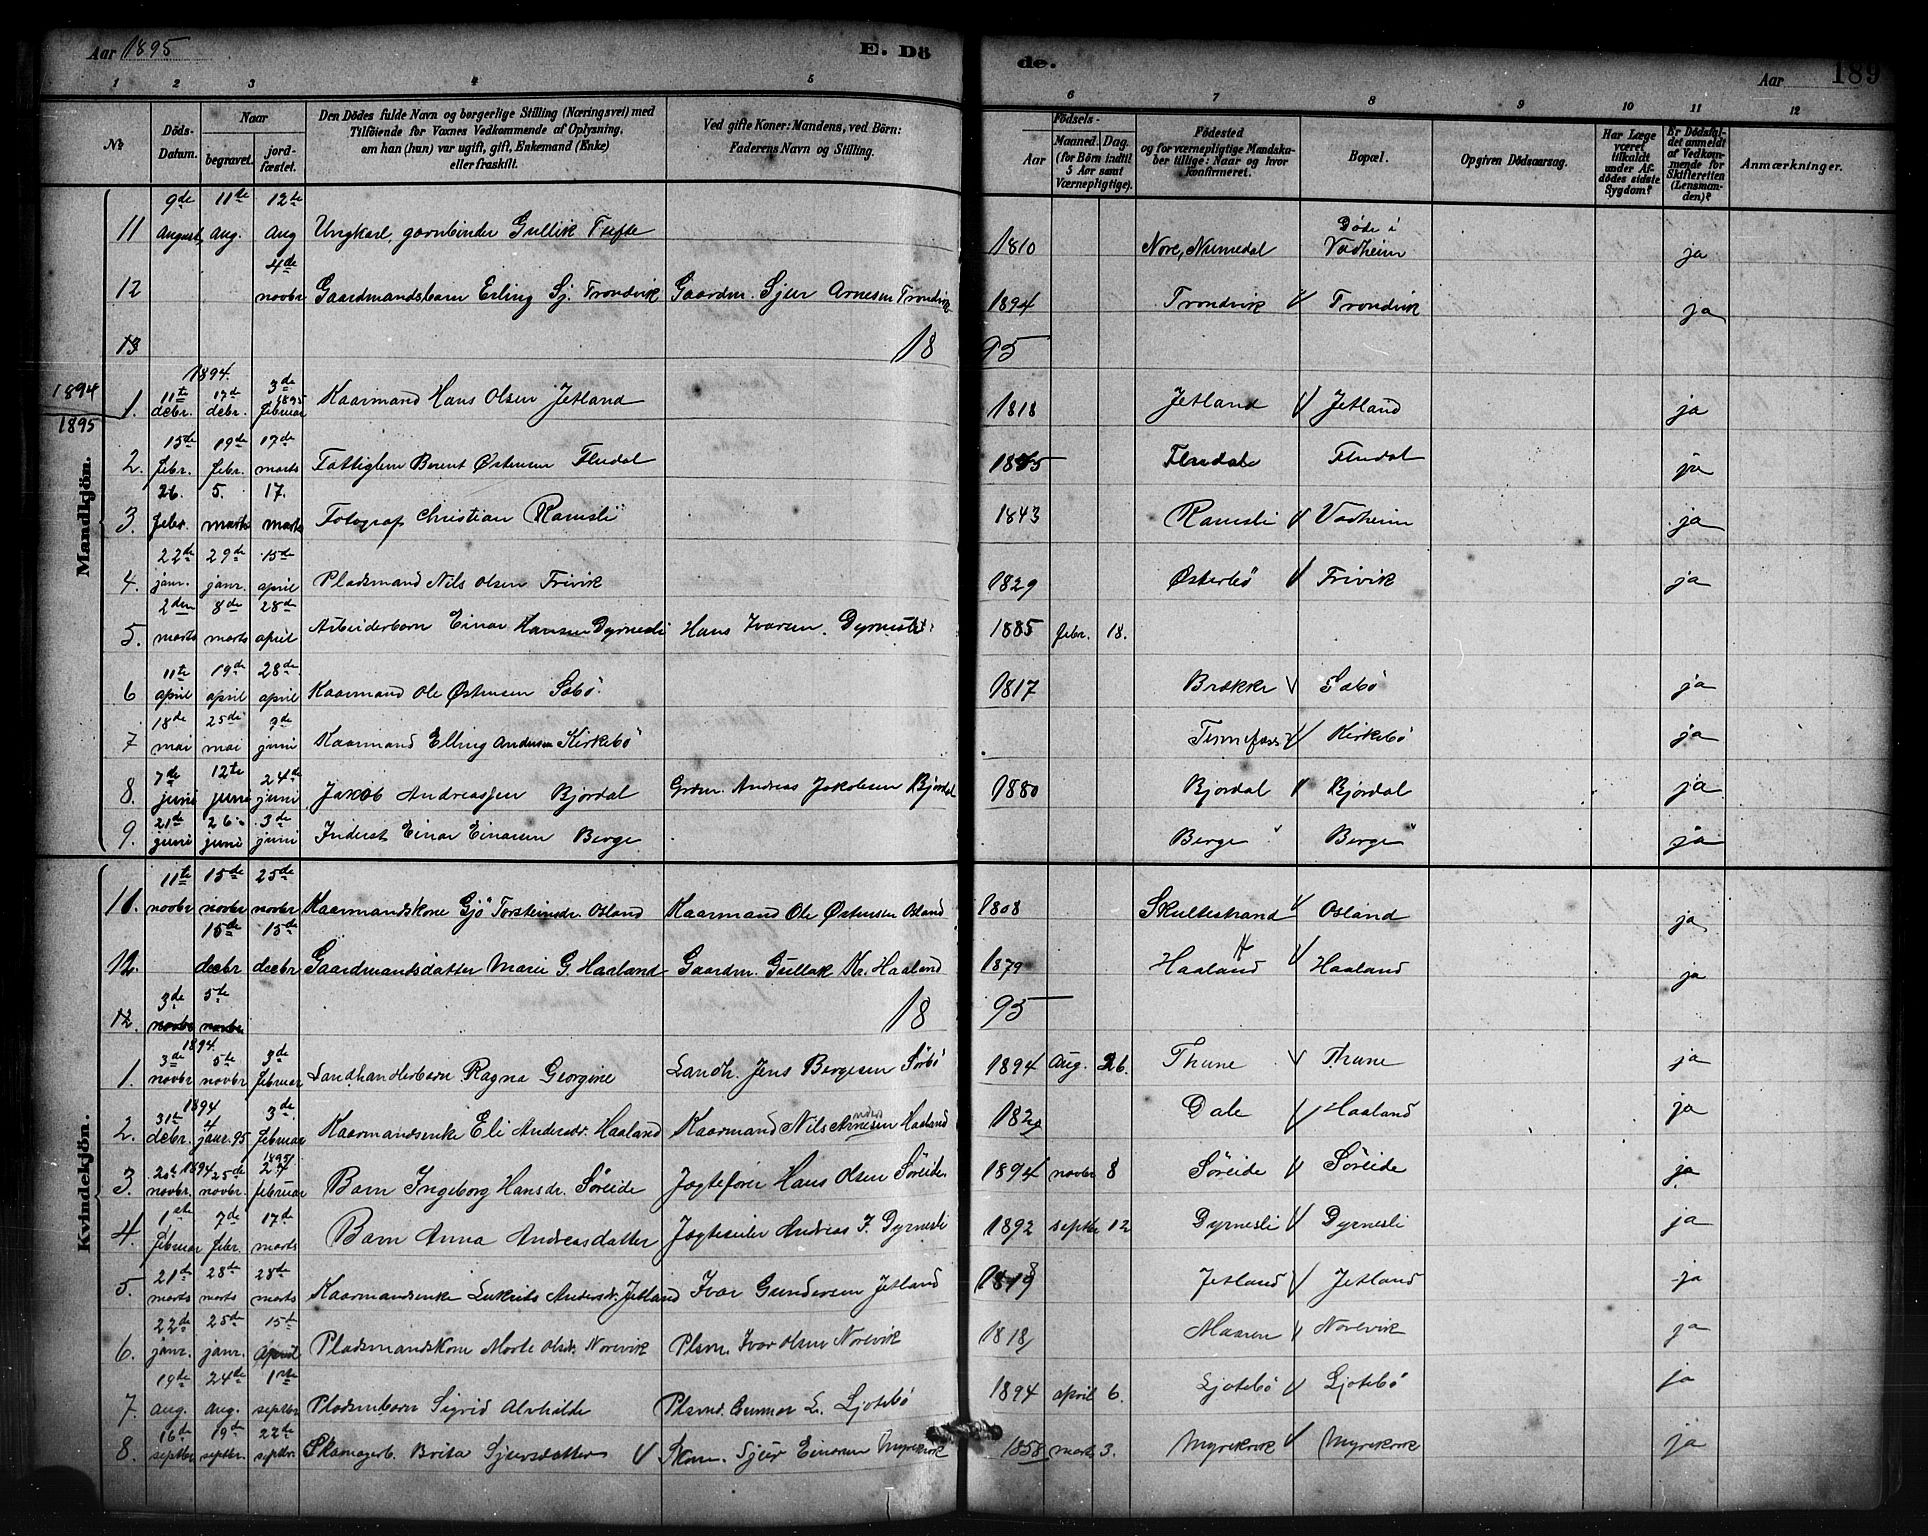 Aar 1895 E. Dö de. Aar 189
1 2 3 4 5 6 7 8 9 10 11 12
No Döds-Datum. Naar begravet. jord-fæstet. Den Dödes fulde Navn og borgerlige Stilling (Næringsvei) med Tilföiende for Voxnes Vedkommende af Oplysning, om han (hun) var ugift, gift, Enkemand (Enke) eller fraskilt. Ved gifte Koner: Mandens, ved Börn: Faderens Navn og Stilling. Födsels- Aar Maaned. Dag. (for Börn indtil 5 Aar samt Værnepligtige). Födested og for værnepligtige Mandskaber tillige: Naar og hvor konfirmeret. Bopæl. Opgiven Dödsaarsag. Har Læge været tilkaldt under Afdödes sidste Sygdom? Er Dödsfaldet anmeldt af Vedkommende for Skifteretten (Lensmanden)? Anmærkninger.
Mandkjön.
11 9de August 11te Aug. 12te Aug Ungkarl, garnbinder Gullik Tufte 1810 Nore, Numedal Døde i Vadheim ja
12 4de novbr Gaardmandsbarn Erling Sj. Trondvik Gaardm. Sjur Arnesen Trondvik 1894 Trondvik V Trondvik ja
13 18 95
1894
1895
1. 1894. 11te debr. 17de debr. 3de 1895 februar Kaarmand Hans Olsen Jetland 1818 Jetland V Jetland ja
2. 15de febr. 19de febr. 17de marts Fattiglem Berent Østensen Flndal Flndal ja
3. 26. febr. 5. marts 17. marts Fotograf Christian Ramsli 1843 Ramsli V Vadheim ja
4. 22de janr. 29de janr. 15de april Pladsmand Nils Olsen Trivik 1829 Østerbö V Trivik ja
5. 2den marts 8de marts 28de april Arbeiderbarn Einar Hansen Dyrnesli Hans Ivarsen Dyrnesli 1885 febr. 18.
6 11te april 19de april 28de april Kaarmand Ole Østensen Sæbö 1817 Brække V Sæbö ja
7 18de mai 25de mai 9de juni Kaarmand Elling Andersen Kirkebö V Kirkebö ja
8. 7de juni 12te juni 24de juni Jakob Andreassen Bjordal Grdm. Andreas Jakobsen Bjordal 1880 Bjordal V Bjordal ja
9. 21de juni 26. juni 3de juni Inderst Einar Einarsen Berge Berge Berge ja
Kvindekjön.
11. 11te novbr 15de novbr 25de novbr Kaarmandskone Gjö Torsteinsdr. Osland Kaarmand Ole Østensen Osland 1808 Skultestrand V Osland ja
12. 15de decbr 15de decbr Gaardmandsdatter Marie G. Haaland Gaardm. Gullak Kr. Haaland 1879 Haaland V Haaland ja
12. 3de novbr 5te novbr 18 95
1. 1894. 3de novbr 5te novbr 3de februar Landhandlerbarn Ragna Georgine Landh. Jens Børgesen Sørbö 1894 Aug. 26. Thune V Thune ja
2. 1894 31te debr. 4 janr. 95 3de februar Kaarmandsenke Eli Andersdr. Haaland Kaarmand Nils Haaland 1820 Dale V Haaland ja
3. 1894 novbr. 25de novbr. 1895 24 februar Barn Ingeborg Hansdr. Søreide Jagtefører Hans Olsen Søreide 1894 novbr 8 Søreide V Søreide ja
4. 1ste februar 7de febr. 17de marts Barn Anna Andreasdatter Jagteseiler Andreas I. Dyrnesli 1892 septbr 12 Dyrnesli V Dyrnesli ja
5. 21de marts 28de marts 28de marts Kaarmandsenke Lukrits Andersdr. Jetland Ivar Gundersen Jetland Jetland V Jetland ja
6. 22de janr. 25de janr. 15de April Pladsmandskone Marte Olsdr. Norevik Plsm. Ivar Olsen Norevik 1818 Maaren V Norevik ja
7. 19de aug. 24de aug. 1ste septbr Pladsmbarn Sigrid Alvhilde Plsmd. Gunnar L. Ljotebö 1894 april 6. Ljotebö V Ljotebö ja
8. 16de septbr 19de septbr. 22de septbr. Skomagerb. Brita Sjursdatter V Skom. Sjur Einarsen Myrekvik 1858 marts 3. Myrekvik V Myrekvik ja